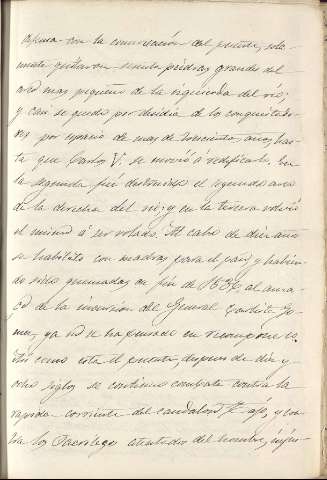 con la conservación del puente, sola-
mente quitaron piedras grandes del
arco mas pequeño de la izquierda del río;
y casi se quedó por de los conquistado-
res por espacio de mas de trescientos años, has-
ta que Carlos V; se movió á redificarlo. En
la segunda fué destruido el segundo arco
de la derecha del rio; y en la tercera volvió
el mismo á ser volado. Al cabo de diez años
se habilitó con madera para el paso y habien-
do sido quemadas en fin de 1836 al amar-
de la invasión del General carlista Go-
mez, ya no se ha pensado en recomponerle.
Así como está el puente, despues de diez y
ocho siglos se continua combate contra la
rapida corriente del caudaloso Tajo, y con-
tra los sacrilegos atentados del hombre, inju-